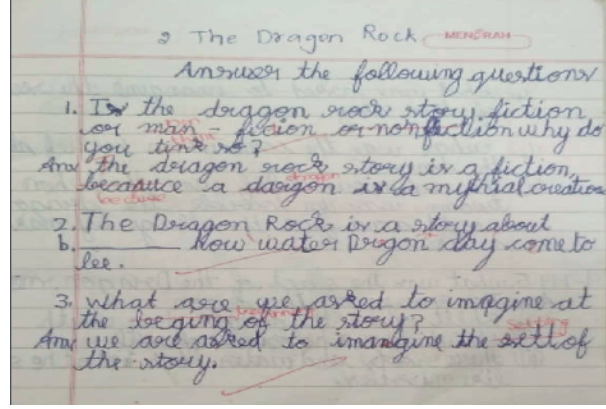 2 The Dragon Rock MENORAH
Answer the following questions
1. Is the dragon rock story fiction
or man - fiction or nonfiction why do
think
you tink so?
Ans the dragon rock story is a fiction,
becauce a dargon is a mythial creation
because dragon
2. The Dragon Rock is a story about
b. ______ how water Drgon day come to
lee.
3. what are we asked to imagine at
the beging of the story?
Ans we are asked to imangine the sett of
setting
the story.